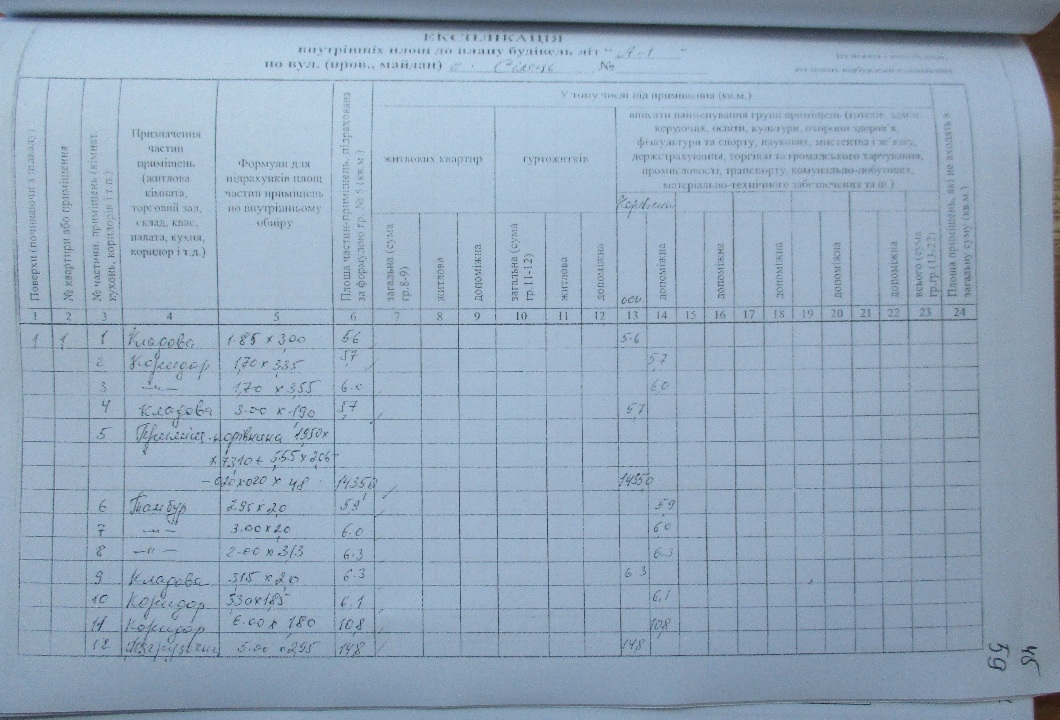 ЕКСПЛІКАЦІЯ
внутрішніх площ до плану будівель літ " А-1 "
по вул. (пров., майдан) с. №
У тому числі під приміщення (кв.м.)
Поверхи (починаючи з підвалу)
№ квартири або приміщення
№ частини, приміщень (кімнат, кухонь, коридорів і т.п.)
Призначення
частин
приміщень
(житлова
кімната,
торговий зал,
склад, клас,
палата, кухня,
коридор і т.д.)
Формули для
підрахунків площ
частин приміщень
по внутрішньому
обміру
Площа частин приміщень, підрахована
за формулою гр. № 5 (кв.м.)
житлових квартир
гуртожитків
вписати найменування групи приміщень (готелів, адмін.
керуючих, освіти, культури, охорони здоров'я,
фізкультури та спорту, наукових, мистецтва і зв'язку,
держстрахування, торгівлі та громадського харчування,
промисловості, транспорту, комунально-побутових,
матеріально-технічного забезпечення та ін.)
загальна (сума гр.8-9)
житлова
допоміжна
загальна (сума гр.11-12)
житлова
допоміжна
осн.
допоміжна
допоміжна
допоміжна
допоміжна
допоміжна
всього (сума гр.гр.(13-22)
Площа приміщень, які не входять в загальну суму (кв.м.)
1 2 3 4 5 6 7 8 9 10 11 12 13 14 15 16 17 18 19 20 21 22 23 24
1 1 1 Кладова 1.85 x 3,00 5.6 5.6
2 Коридор 1,70 x 3,35 5,7 5,7
3 –"– 1,70 x 3,55 6.0 6,0
4 Кладова 3.00 x 1,90 5,7 5,7
5 Приміщ. корівника 19,50 x
x 73,10 + 5,55 x 2,66 -
- 0,20 x 0,20 x 48 1435,0 1435,0
6 Тамбур 2.95 x 2,0 5,9 5,9
7 –"– 3.00 x 2,0 6.0 6,0
8 –"– 2.00 x 3,13 6.3 6.3
9 Кладова 3,15 x 2,0 6.3 6.3
10 Коридор 3,30 x 1,85 6,1 6,1
11 Коридор 6.00 x 1,80 10,8 10,8
12 5.00 x 2,95 14,8 14,8
45
59